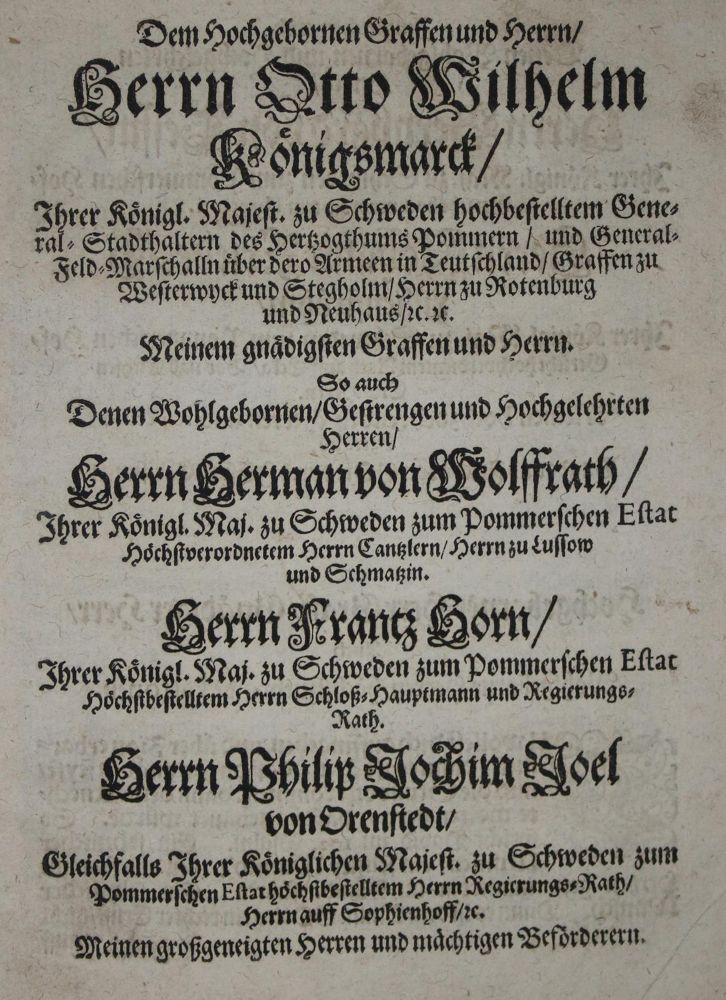 Dem Hochgebornen Graffen und Herrn/
Herrn Otto Wilhelm
Königsmarck/
Ihrer Königl. Majest. zu Schweden hochbestelltem Gene-
ral- Stadthaltern des Hertzogthums Pommern / und General-
Feld-Marschalln über dero Armeen in Teutschland/ Graffen zu
Westerwyck und Stegholm/ Herrn zu Rotenburg
und Neuhaus/ ꝛc. ꝛc.
Meinem gnädigsten Graffen und Herrn.
So auch
Denen Wohlgebornen/ Gestrengen und Hochgelehrten
Herren/
Herrn Herman von Wolffrath/
Ihrer Königl. Maj. zu Schweden zum Pommerschen Estat
Höchstverordnetem Herrn Cantzlern/ Herrn zu Lussow
und Schmatzin.
Herrn Frantz Horn/
Ihrer Königl. Maj. zu Schweden zum Pommerschen Estat
Höchstbestelltem Herrn Schloß-Hauptmann und Regierungs-
Rath.
Herrn Philip Jochim Joel
von Orenstedt/
Gleichfalls Ihrer Königlichen Majest. zu Schweden zum
Pommerschen Estat höchstbestelltem Herrn Regierungs-Rath/
Herrn auff Sophienhoff/ ꝛc.
Meinen großgeneigten Herren und mächtigen Beförderern.